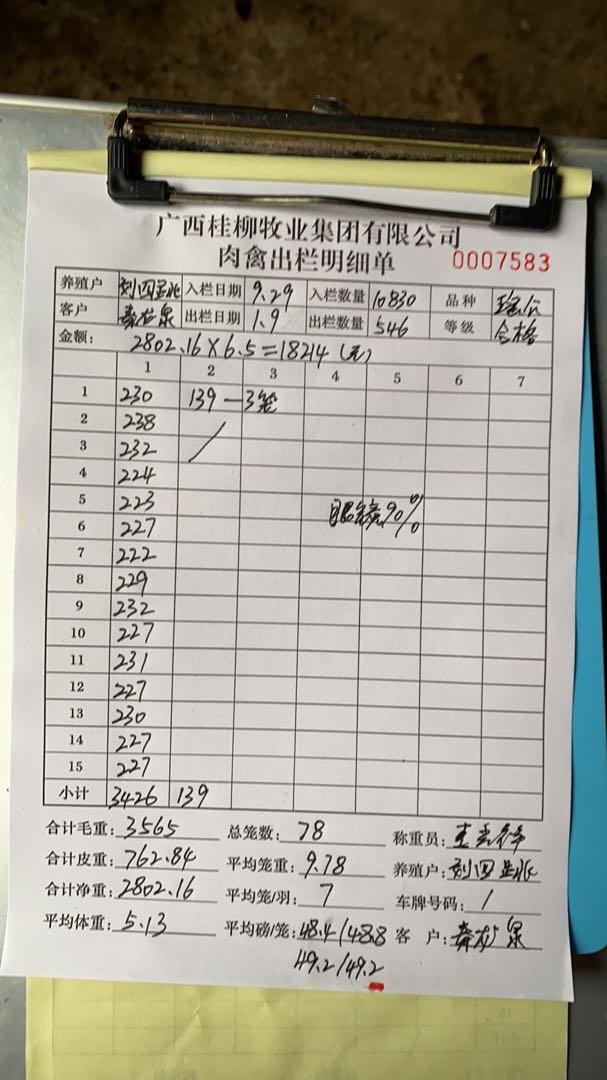 广西桂柳牧业集团有限公司
肉禽出栏明细单 0007583
养殖户 入栏日期 9.29 入栏数量 10830 品种
客户 秦龙泉 出栏日期 1.9 出栏数量 546 等级 合格
金额: 2802.16×6.5=18214(元)
1 2 3 4 5 6 7
1 230 139—3笼
2 238
3 232
4 224
5 223 90%
6 227
7 222
8 229
9 232
10 227
11 231
12 227
13 230
14 227
15 227
小计 3426 139
合计毛重: 3565 总笼数: 78 称重员:
合计皮重: 762.84 平均笼重: 9.78 养殖户:
合计净重: 2802.16 平均笼/羽: 7 车牌号码: /
平均体重: 5.13 平均磅/笼: 48.4/48.8 客户: 秦龙泉
49.2/49.2